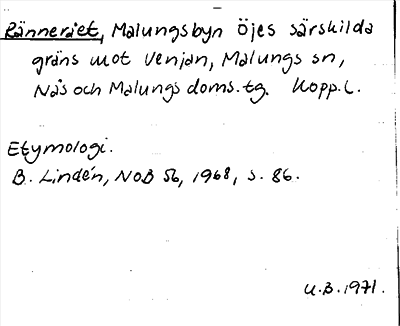 Rännerået, Malungsbyn Öjes särskilda
gräns mot Venjan, Malungs sn,
Nås och Malungs doms.tg. Kopp.l.
Etymologi.
B. Lindén, NOB 56, 1968, s. 86.
U.B.1971.